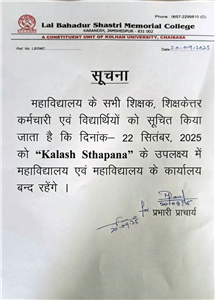 Phone : 0657-2299810 (O)
Lal Bahadur Shastri Memorial College
KARANDIH, JAMSHEDPUR - 831 002
A CONSTITUENT UNIT OF KOLHAN UNIVERSITY, CHAIBASA
Ref. No. LBSMC
Date 20.09.2025
सूचना
महाविद्यालय के सभी शिक्षक, शिक्षकेत्तर
कर्मचारी एवं विद्यार्थियों को सूचित किया
जाता है कि दिनांक– 22 सितंबर, 2025
को “Kalash Sthapana” के उपलक्ष्य में
महाविद्यालय एवं महाविद्यालय के कार्यालय
बन्द रहेंगे ।
for प्रभारी प्राचार्य